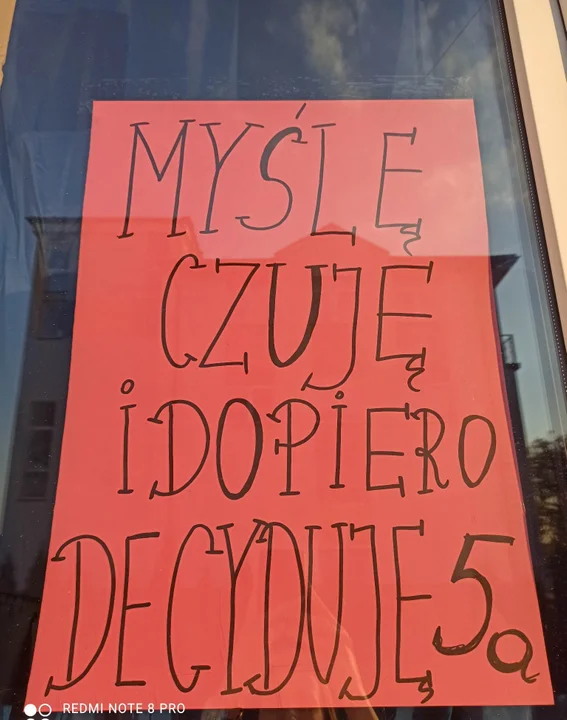 MYŚLĘ
CZUJĘ
i DOPiERO
DECYDUJĘ 5a
REDMI NOTE 8 PRO